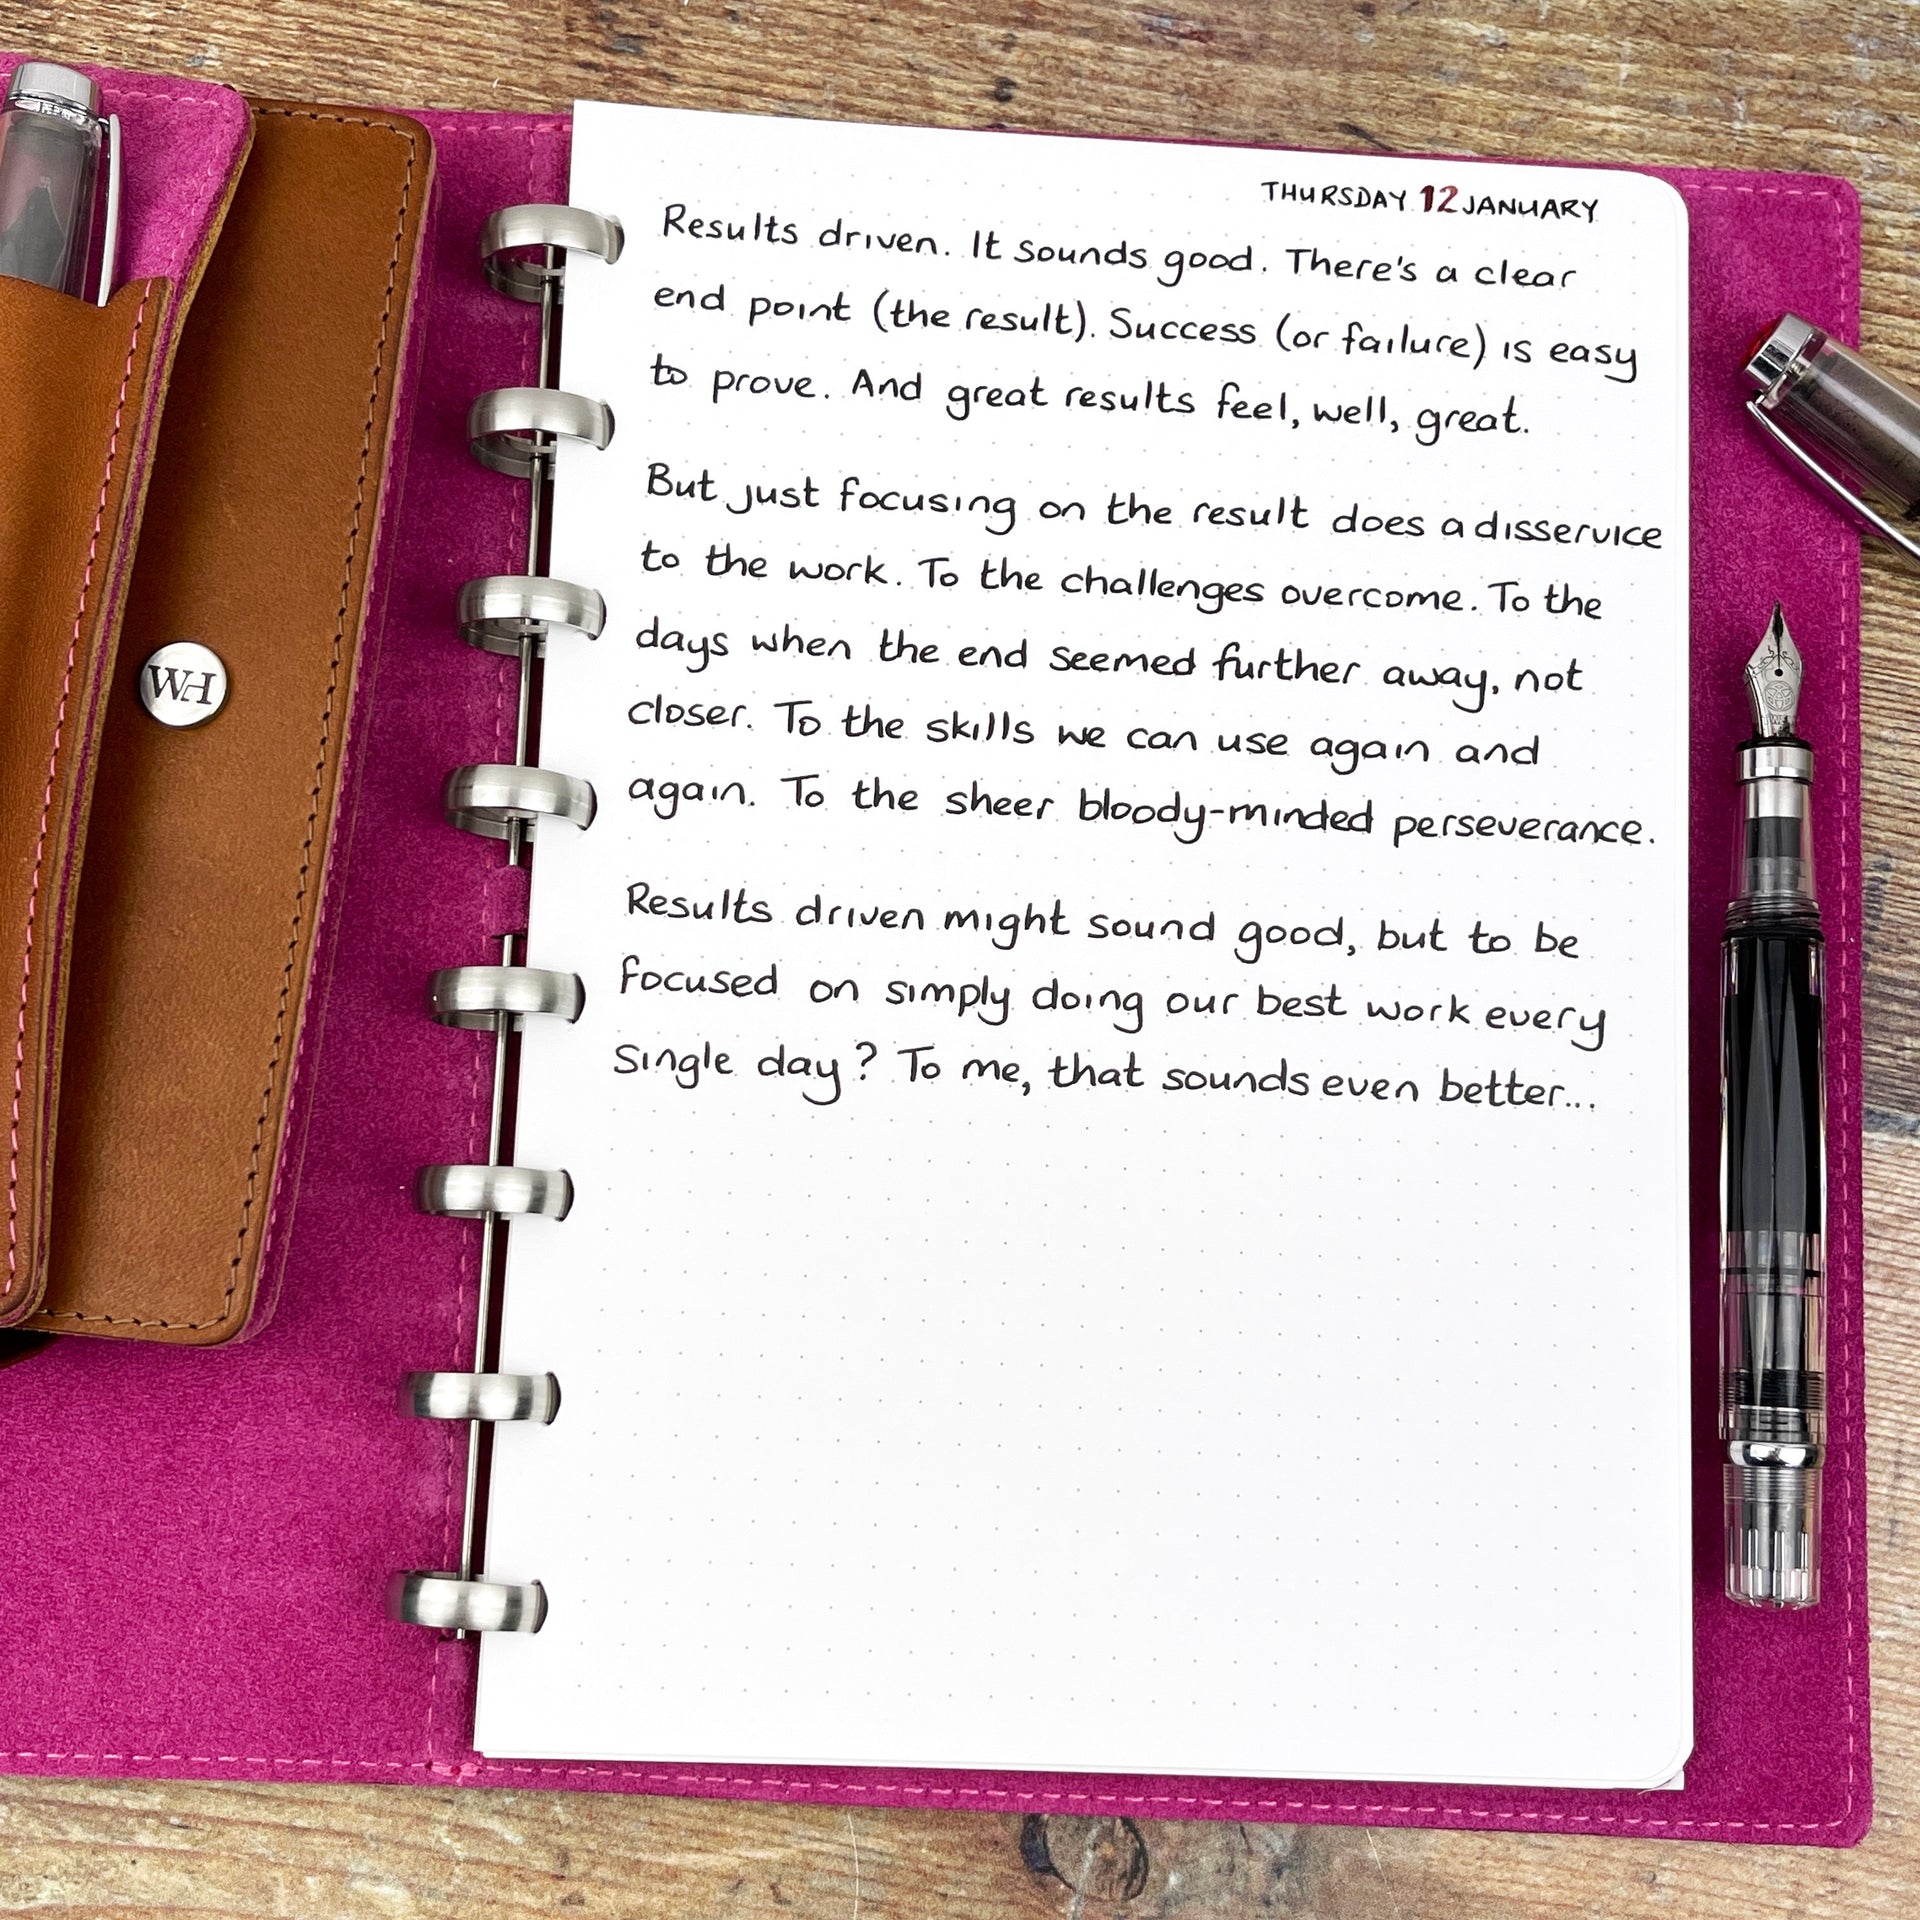 THURSDAY 12 JANUARY
Results driven. It sounds good. There's a clear
end point (the result). Success (or failure) is easy
to prove. And great results feel, well, great.
But just focusing on the result does a disservice
to the work. To the challenges overcome. To the
days when the end seemed further away, not
closer. To the skills we can use again and
again. To the sheer bloody-minded perseverance.
Results driven might sound good, but to be
focused on simply doing our best work every
single day? To me, that sounds even better...
WH